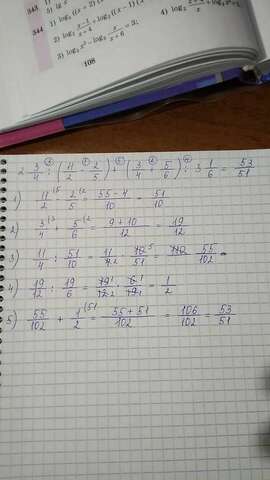 343
344 1) log₂ ((x + 2) (x
2) log₂ (x-1)/(x+4) + log₂ ((x - 1) (x
3) log₃ x² - log₃ x/(x+6) = 3;
4) log₂
108
2 3/4 : (11/2 - 2/5) + (3/4 + 5/6) : 3 1/6 = 53/51
1) 11/2 - 2/5 = (55-4)/10 = 51/10
2) 3/4 + 5/6 = (9+10)/12 = 19/12
3) 11/4 : 51/10 = 11/4 · 10/51 = 55/102
4) 19/12 : 19/6 = 19/12 · 6/19 = 1/2
5) 55/102 + 1/2 = (55+51)/102 = 106/102 = 53/51